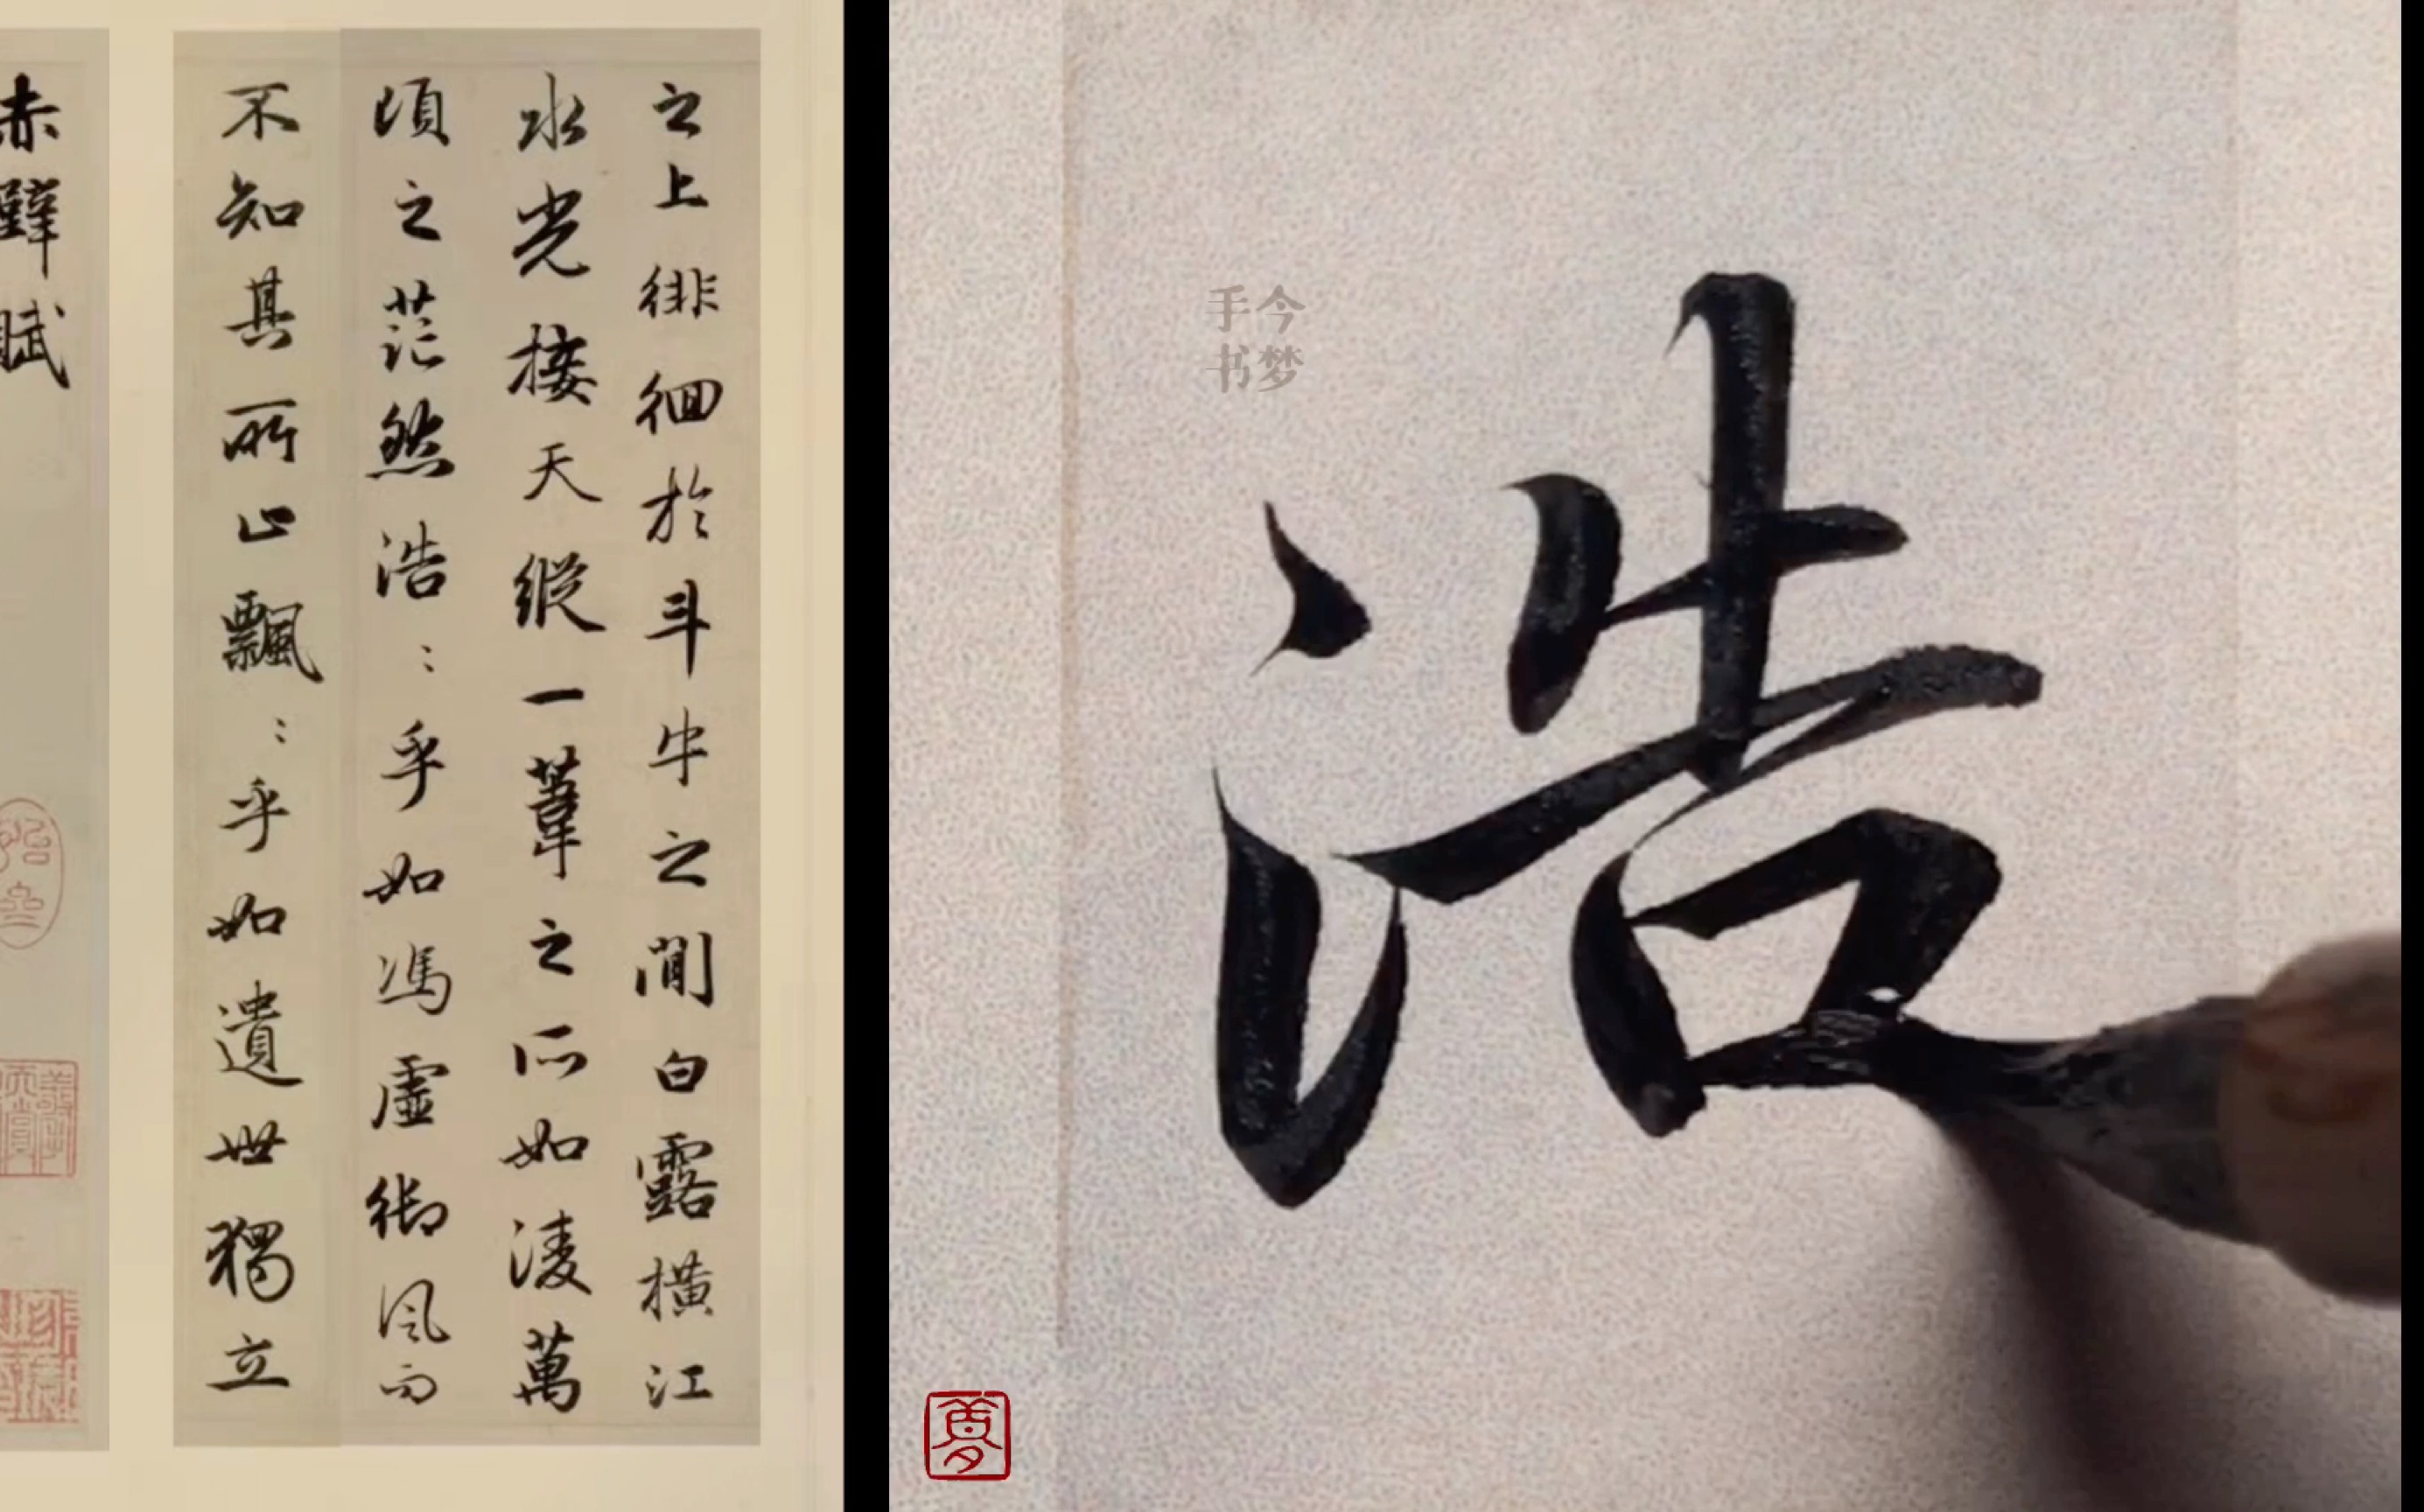 之上徘徊於斗牛之閒白露橫江
水光接天縱一葦之所如淩萬
頃之茫然浩〻乎如馮虛御風而
不知其所止飄〻乎如遺世獨立
赤壁賦
今梦
手书
浩